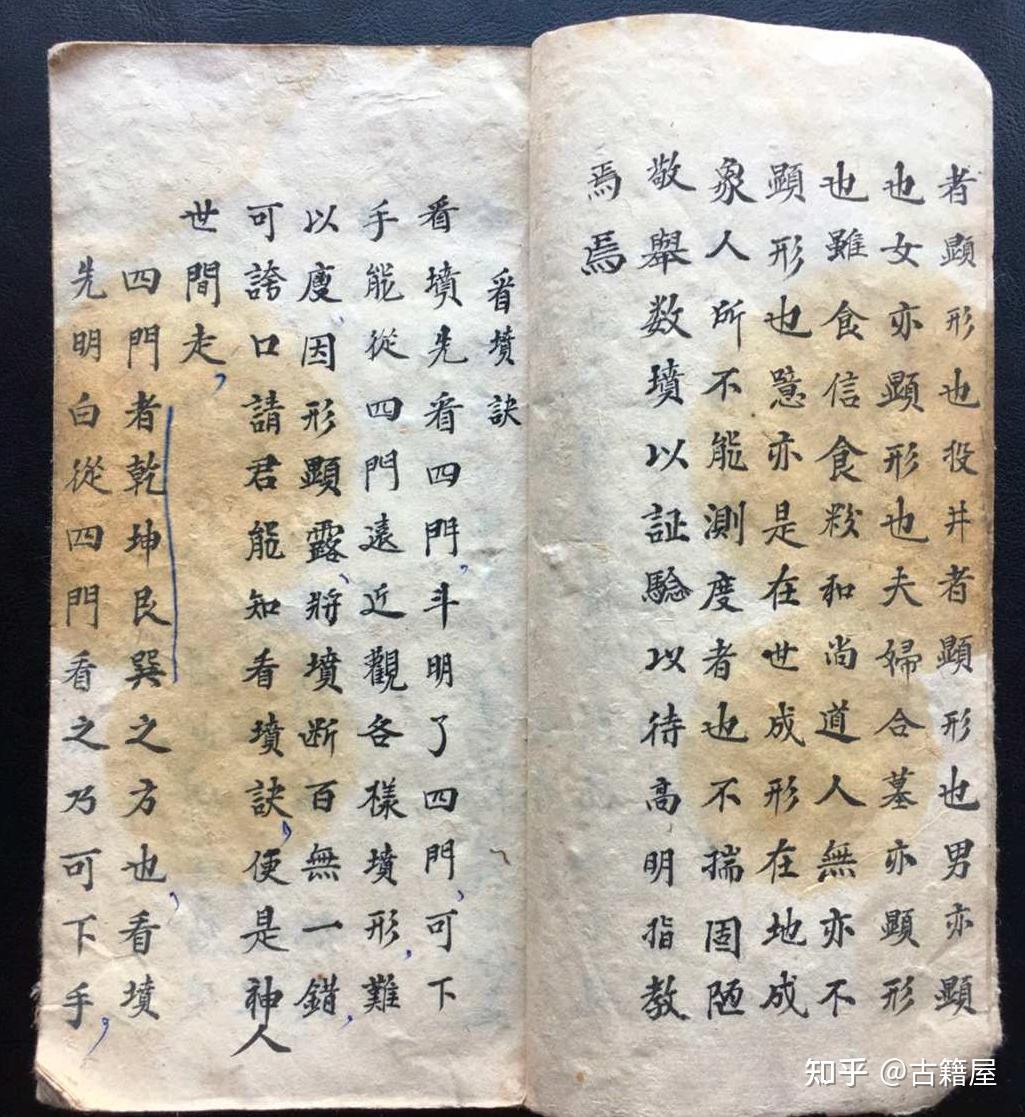 者顕形也投井者顕形也男亦顕
也女亦顕形也夫婦合墓亦顕形
也雖食信食粉和尚道人無亦不
顕形也憶亦是在世成形在地成
象人所不能測度者也不揣固陋
敬舉数墳以証驗以待高明指教
焉焉
看墳訣
看墳先看四門,斗明了四門,可下
手能從四門遠近觀各樣墳形,難
以度因形顕露,將墳断百無一錯,
可誇口請君能知看墳訣,便是神人
世間走,
四門者乾坤艮巽之方也,看墳
先明白從四門看之乃可下手,
知乎 @古籍屋